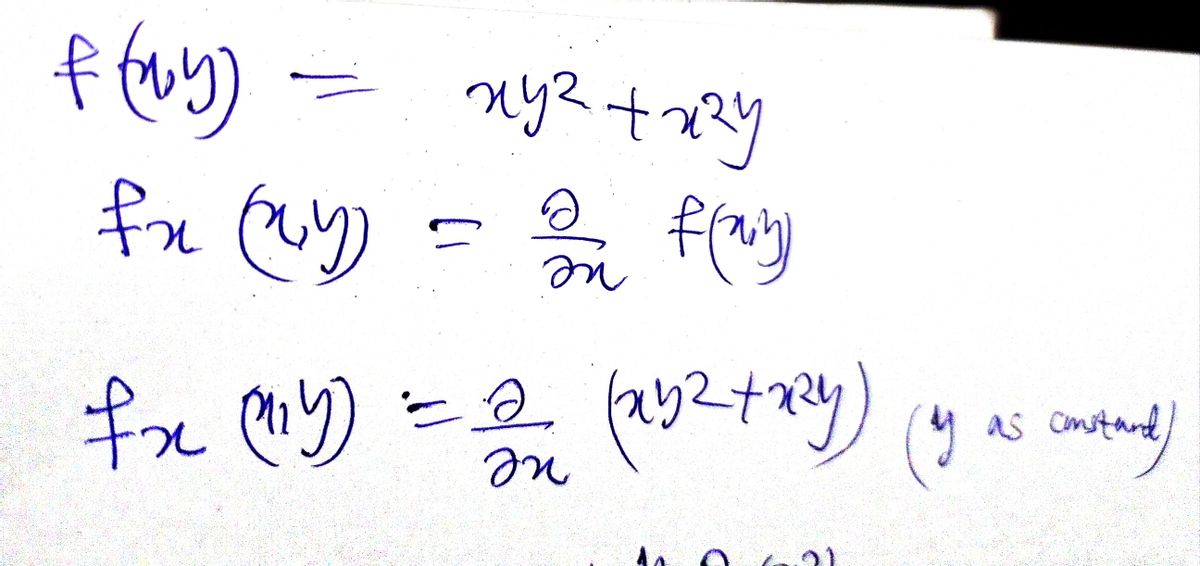 f(x,y) = xy² + x²y
fx (x,y) = ∂/∂x f(x,y)
fx (x,y) = ∂/∂x (xy² + x²y) (y as constant)